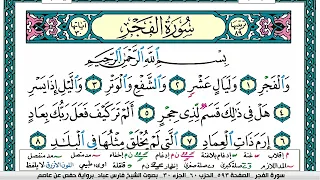 سُورَةُ الفَجْرِ
بِسْمِ اللَّهِ الرَّحْمَٰنِ الرَّحِيمِ
وَالْفَجْرِ ١ وَلَيَالٍ عَشْرٍ ٢ وَالشَّفْعِ وَالْوَتْرِ ٣ وَاللَّيْلِ إِذَا يَسْرِ
٤ هَلْ فِي ذَٰلِكَ قَسَمٌ لِّذِي حِجْرٍ ٥ أَلَمْ تَرَ كَيْفَ فَعَلَ رَبُّكَ بِعَادٍ
٦ إِرَمَ ذَاتِ الْعِمَادِ ٧ الَّتِي لَمْ يُخْلَقْ مِثْلُهَا فِي الْبِلَادِ ٨
سورة الفجر الصفحة ٥٩٣ الحزب ٦٠ الجزء ٣٠ بصوت الشيخ فارس عباد برواية حفص عن عاصم